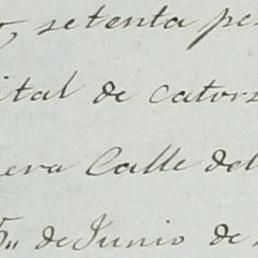 setenta pe
ital de cators
era Calle del
5„ de Junio de